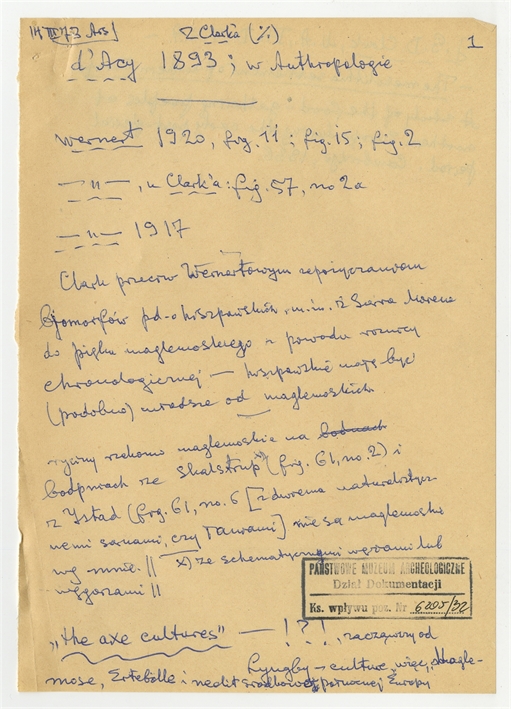 14 III 73 Ars] Z Clark'a (%) 1
d'Acy 1893; w Anthropologie
Wernert 1920, fig. 11; fig. 15; fig. 2
—„—, u Clark'a: fig. 57, no 2a
—„— 1917
Clark przeciw Wernertowym zapożyczeniom
bjomorfów pd-o hiszpańskich, m.in. iż Sierra Morena
do piętka maglemoskiego z powodu różnicy
chronologicznej — hiszpańskie mają być
(podobno) młodsze od maglemoskich
ryciny rzekomo maglemoskie na
bodpurach ze Skalstrup x) (fig. 61, no. 2) i
z Ystad (fig. 61, no. 6 [z dwiema naturalistycz-
nemi sarnami, czy Taurami] nie są maglemoskie
wg mnie. || x) ze schematycznymi wężami lub
węgorzami ||
PAŃSTWOWE MUZEUM ARCHEOLOGICZNE
Dział Dokumentacji
Ks. wpływu poz. Nr 6205/32
„the axe cultures" — !?!, zacząwszy od
Lyngby-culture, więc, Magle-
mose, Ertebölle i neolit środkowej i północnej Europy